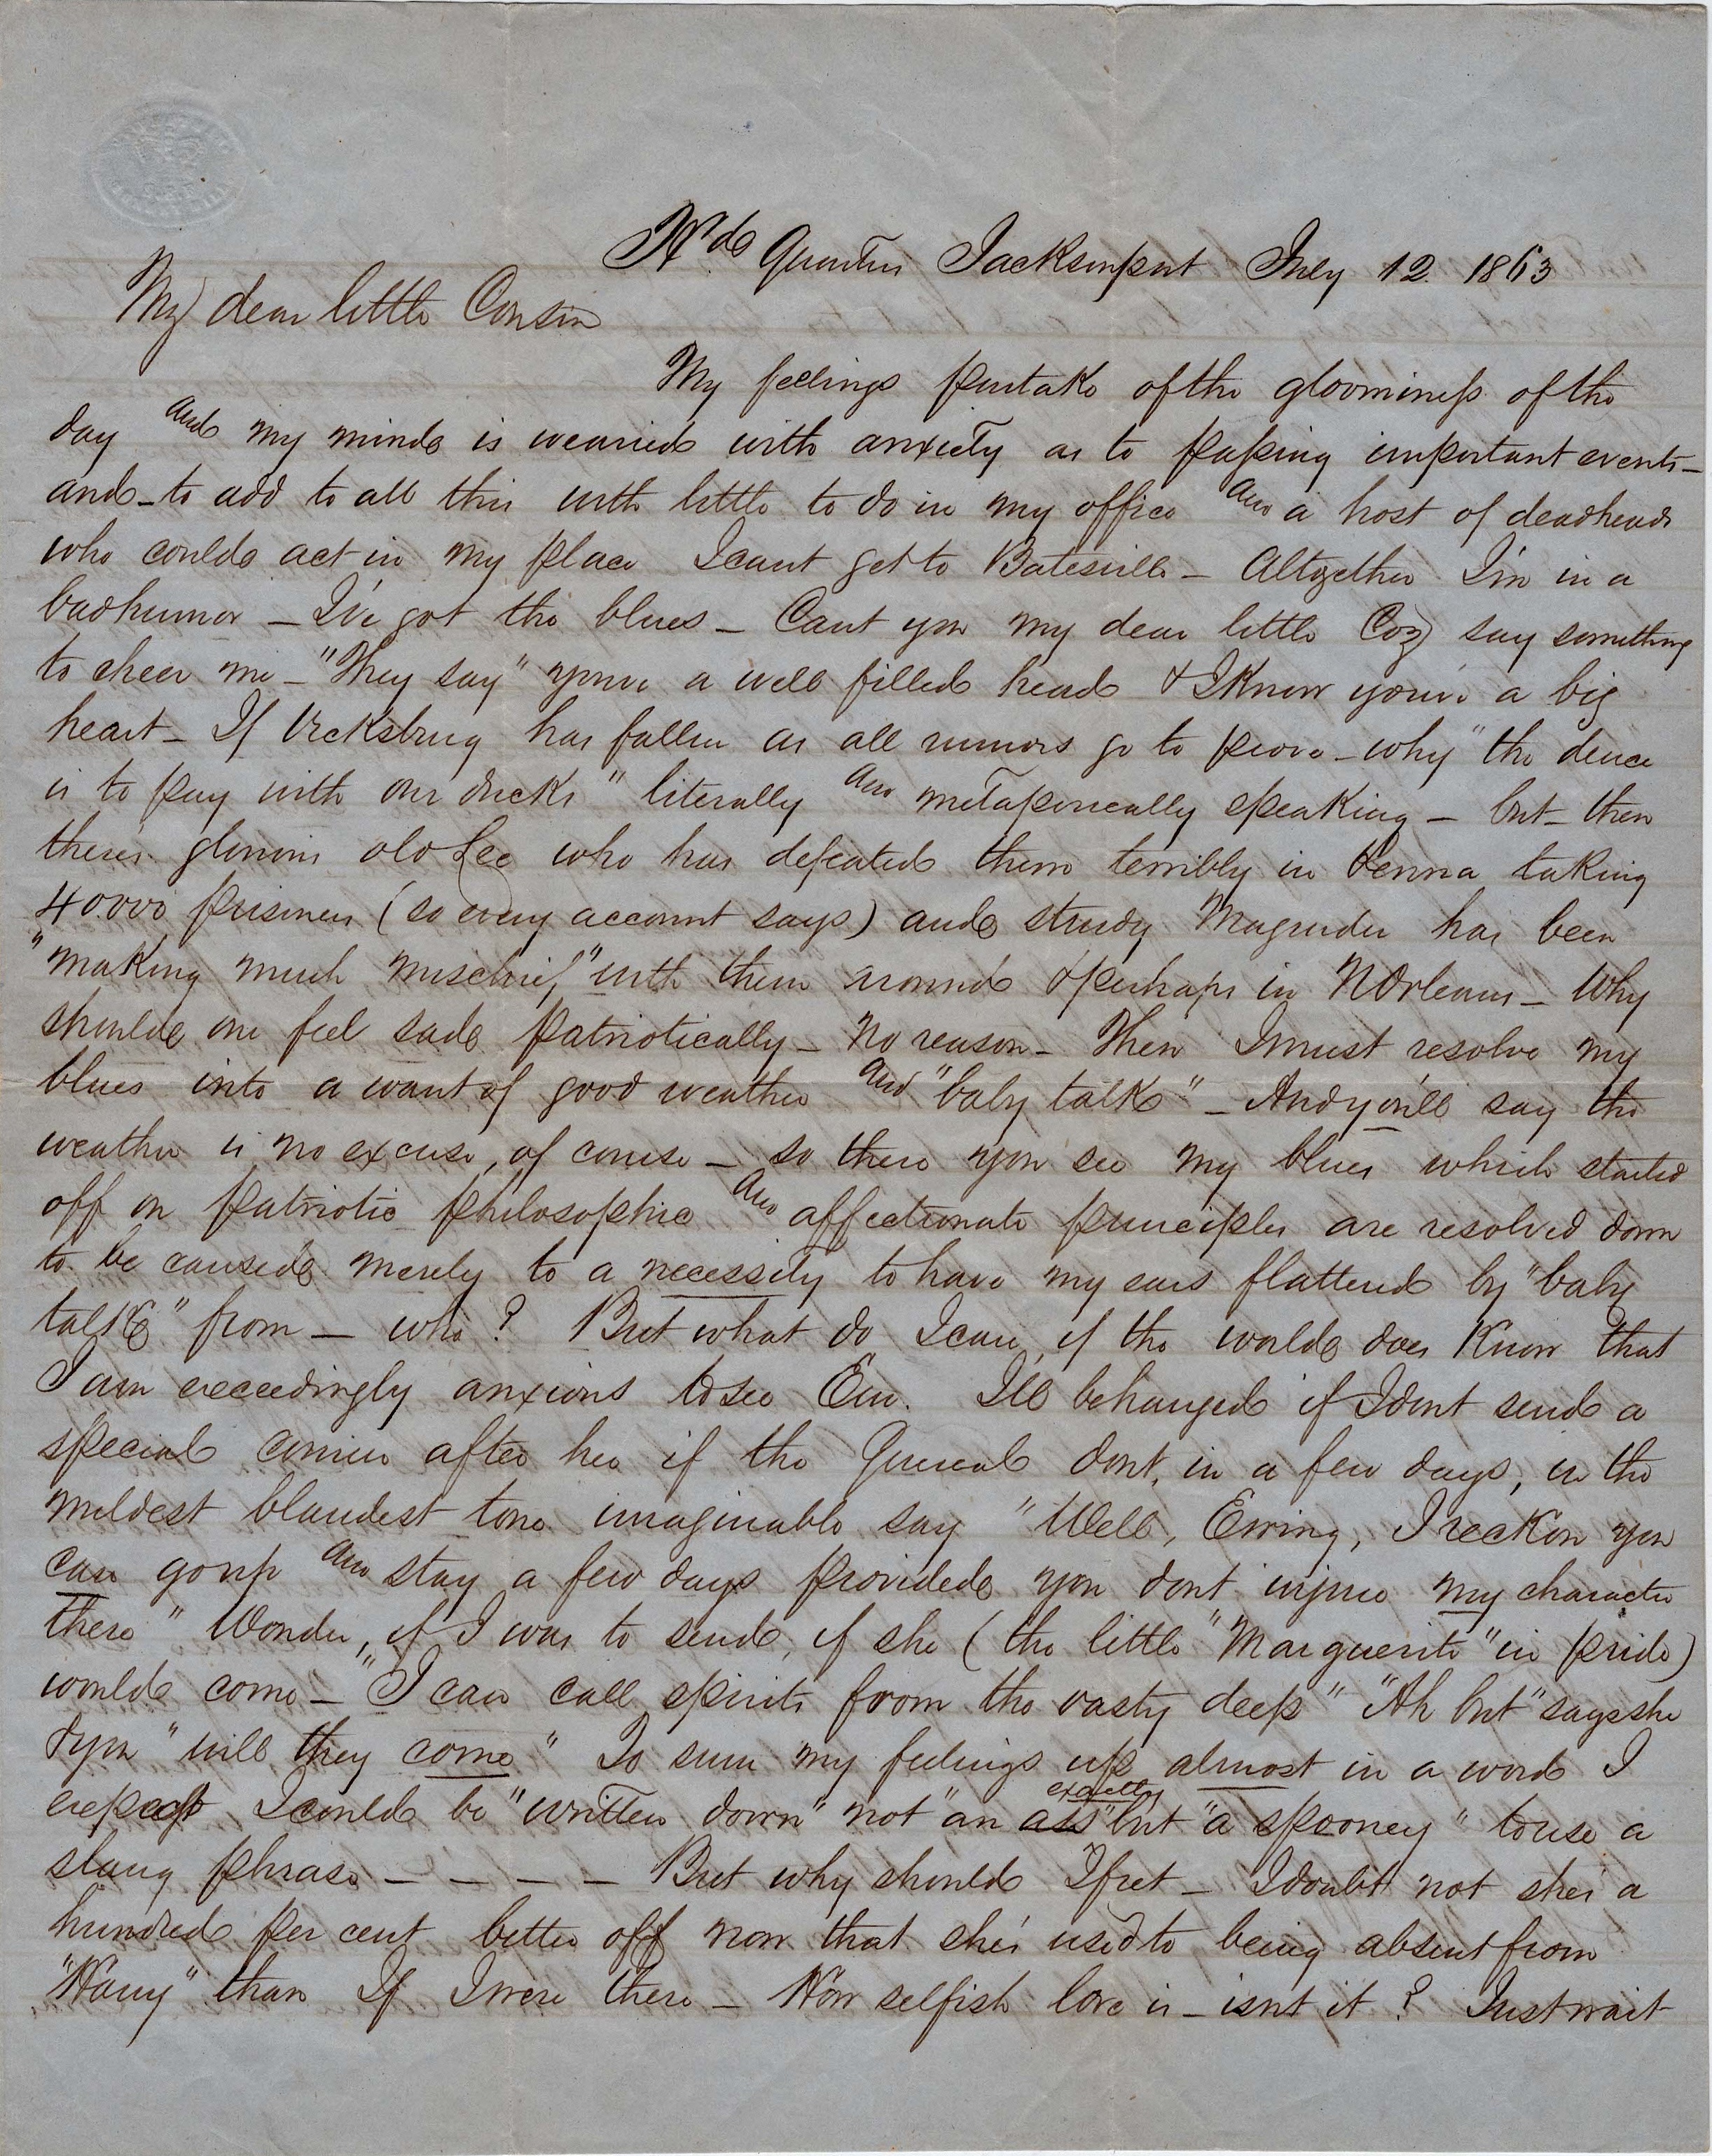 Hd Quarters Jacksonport July 12. 1863
My dear little Cousin
My feelings partake of the gloominess of the
day and my mind is wearied with anxiety as to passing important events -
and - to add to all this with little to do in my office and a host of deadheads
who could act in my place I cant get to Batesville - Altogether I'm in a
bad humor - I've got the blues - Cant you my dear little Coz say something
to cheer me - "They say" youve a well filled head & I know you've a big
heart - If Vicksburg has fallen as all rumors go to prove - why "the deuce
is to pay with our ducks" literally and metaporically speaking - but - then
there's glorious old Lee who has defeated them terribly in Penna taking
40.000 prisoners (so every account says) and sturdy Magruder has been
"making much mischief," with them around & perhaps in NOrleans - Why
should one feel sad patriotically - No reason - Then I must resolve my
blues into a want of good weather and "baby talk" - And you'll say the
weather is no excuse, of course - so there you see my blues which started
off on patriotic philosophic and affectionate principles are resolved down
to be caused merely to a necessity to have my ears flattered by "baby
talk" from - who? But what do I care, if the world does know that
I am exceedingly anxious to see Em. Ill be hanged if I dont send a
special courier after her if the General dont, in a few days, in the
mildest blandest tone imaginable say "Well, Ewing, I reckon you
can go up and stay a few days provided you dont injure my character
there" Wonder, if I was to send, if she (the little "Marguerite" in pride)
would come - "I can call spirits from the vasty deep" "Ah but" says she
& you "will they come" To sum my feelings up almost in a word I
expect I could be "written down" not "an ass" exactly but "a spooney" to use a
slang phrase - - - - But why should I fret - I doubt not she's a
hundred per cent better off now that she's used to being absent from
"Harry" than if I were there - How selfish love is - isnt it? Just wait